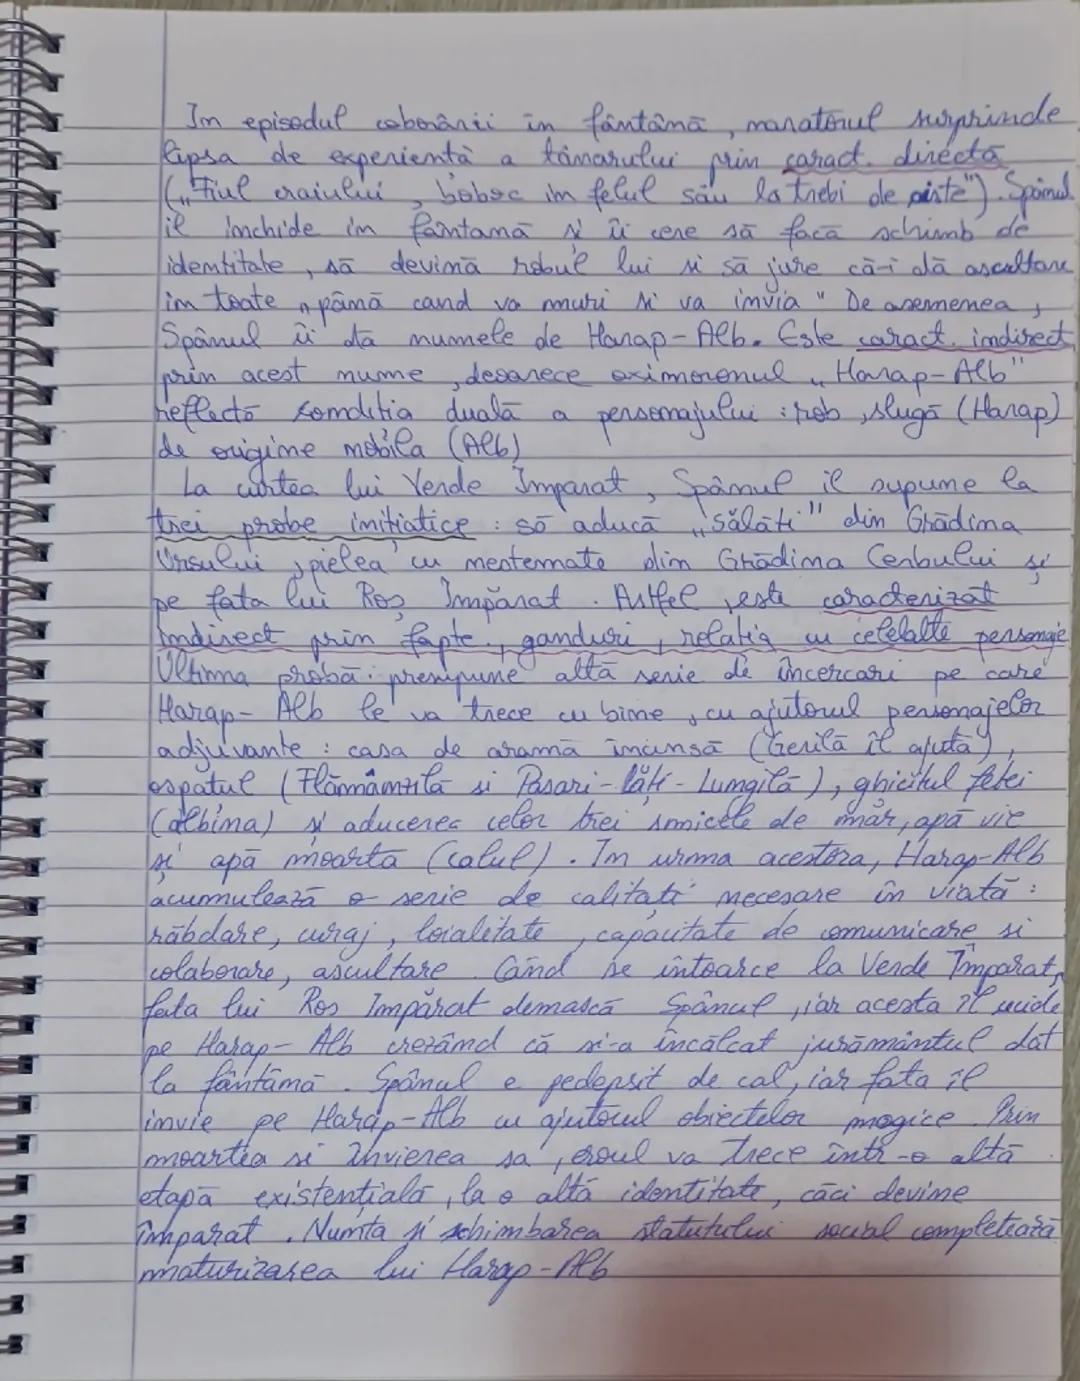 In episodul coborârii în fântână, naratorul surprinde
lipsa de experiență a tânarului prin caract. directă
(„Fiul craiului, boboc în felul său la trebi de aiste"). Spânul
il închide în fântană și îi cere să facă schimb de
identitate, să devină robul lui si să jure că-i dă ascultare
in toate „până cand va muri și va învia" De asemenea,
Spânul îi dă numele de Harap-Alb. Este caract. indirect
prin acest nume, deoarece oximoronul „Harap-Alb"
reflectă condiția duală a personajului: rob, slugă (Harap)
de origine nobila (Alb)
La curtea lui Verde Împarat, Spânul il supune la
trei probe inițiatice: să aducă „sălăți" din Grădina
Ursului, pielea cu nestemate din Grădina Cerbului și
pe fata lui Roș Împărat. Astfel, este caracterizat
indirect prin fapte, ganduri, relatia cu celelalte personaje
Ultima probă presupune altă serie de încercari pe care
Harap-Alb le va trece cu bine, cu ajutorul personajelor
adjuvante: casa de aramă încinsă (Gerilă îl ajută),
ospatul (Flămânzilă si Pasari-lăți-Lungilă), ghicitul fetei
(albina) și aducerea celor trei smicele de măr, apă vie
și apă moartă (calul). In urma acestora, Harap-Alb
acumulează o serie de calitați necesare în viată:
răbdare, curaj, loialitate, capacitate de comunicare si
colaborare, ascultare. Când se întoarce la Verde Împarat,
fata lui Roș Împărat demască Spânul, iar acesta îl ucide
pe Harap-Alb crezând că și-a încălcat jurământul dat
la fântână. Spânul e pedepsit de cal, iar fata îl
învie pe Harap-Alb cu ajutorul obiectelor magice. Prin
moartea si învierea sa, eroul va trece într-o altă
etapă existențială, la o altă identitate, căci devine
împarat. Nunta și schimbarea statutului social completează
maturizarea lui Harap-Alb